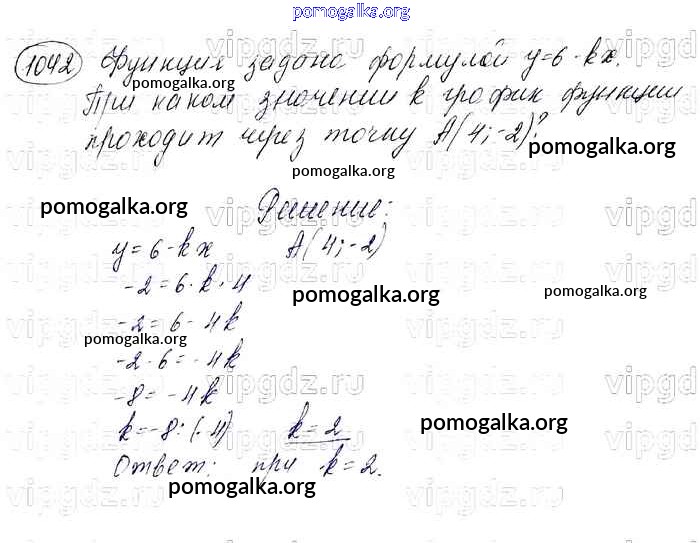 pomogalka.org
1042 Функция задана формулой y=6-kx.
При каком значении k график функции
проходит через точку A(4;-2)?
pomogalka.org
pomogalka.org
pomogalka.org
pomogalka.org
Решение:
y=6-kx A(4;-2)
-2=6-k·4
pomogalka.org
pomogalka.org
-2=6-4k
pomogalka.org
-2-6=-4k
-8=-4k
vipgdz.ru
k=-8:(-4) k=2
pomogalka.org
Ответ: при k=2.
pomogalka.org